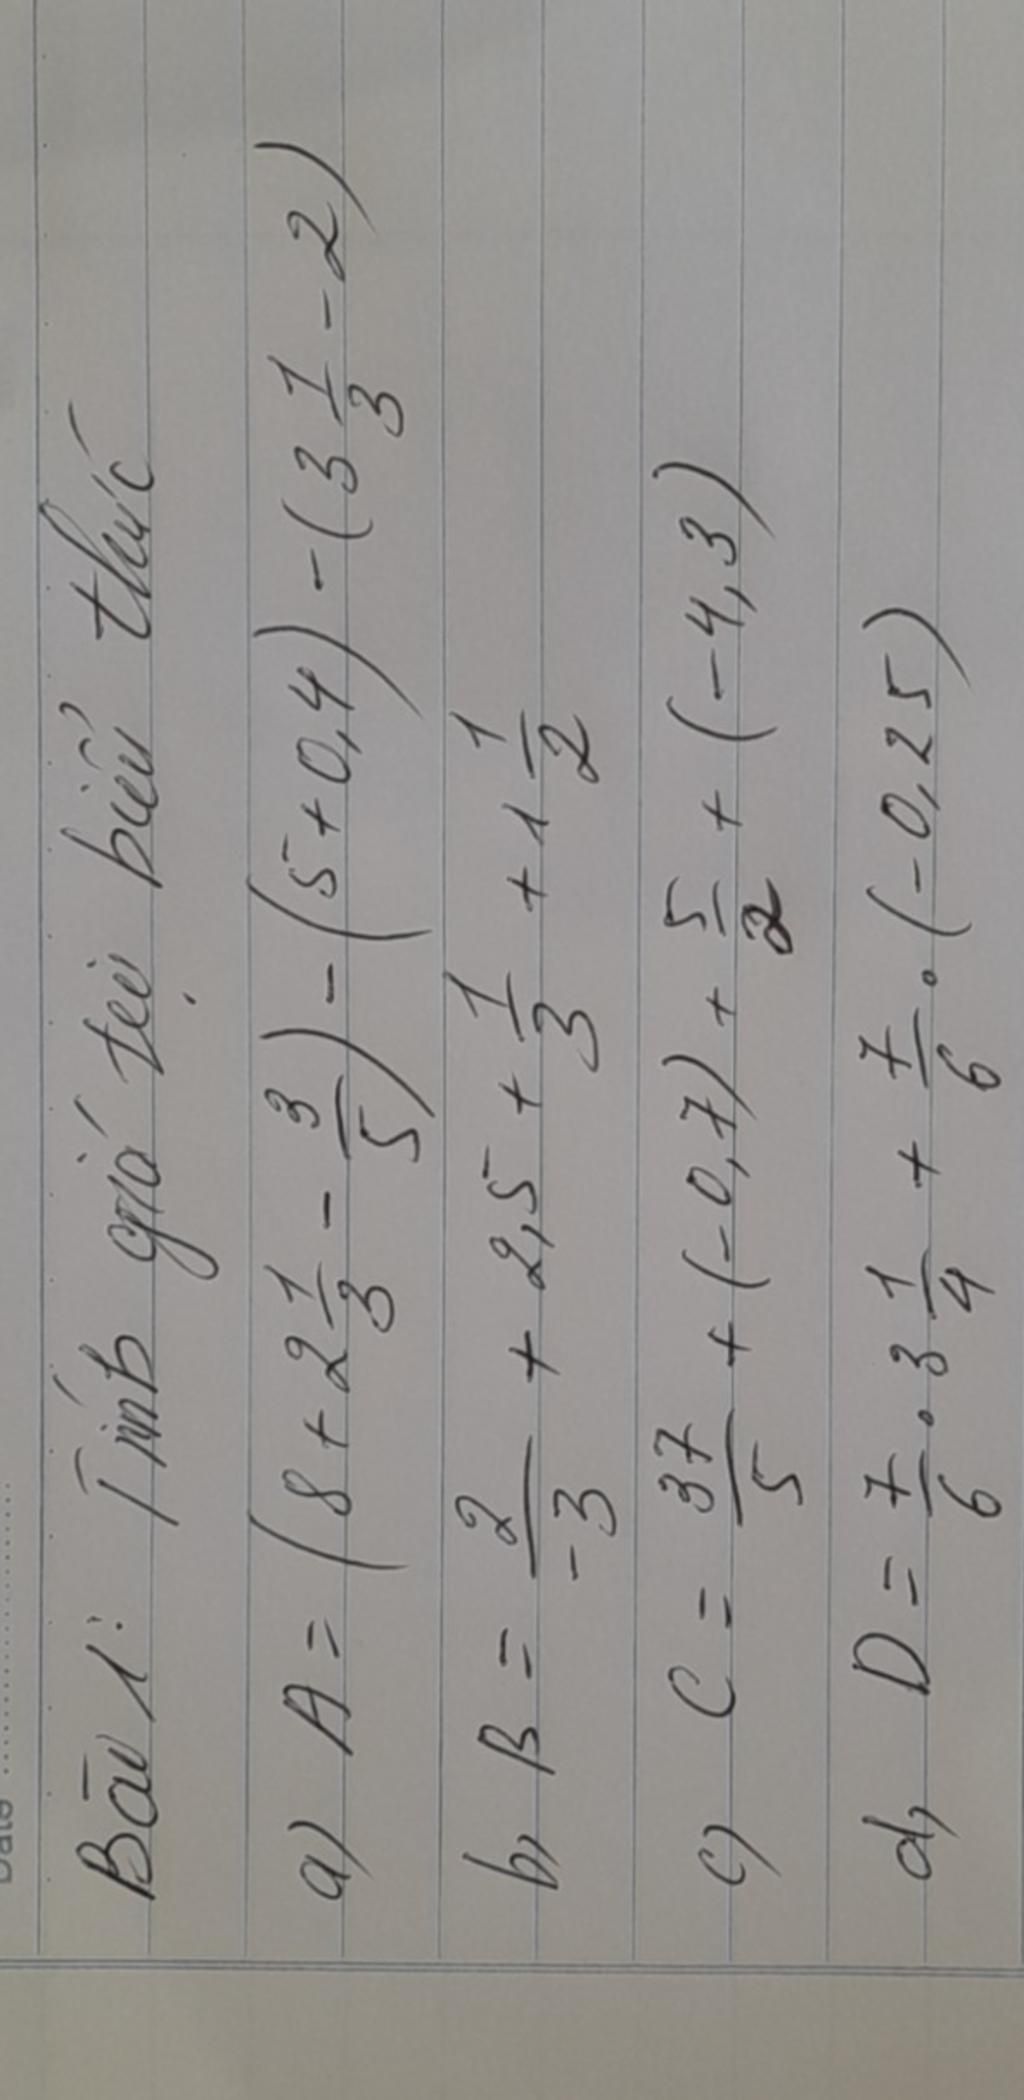 Date ....................
Bài 1: Tính giá trị biểu thức
a) A = (8 + 2 1/3 - 3/5) - (5 + 0,4) - (3 1/3 - 2)
b, B = 2/-3 + 2,5 + 1/3 + 1 1/2
c) C = 37/5 + (-0,7) + 5/2 + (-4,3)
d, D = 7/6 . 3 1/4 + 7/6 . (-0,25)